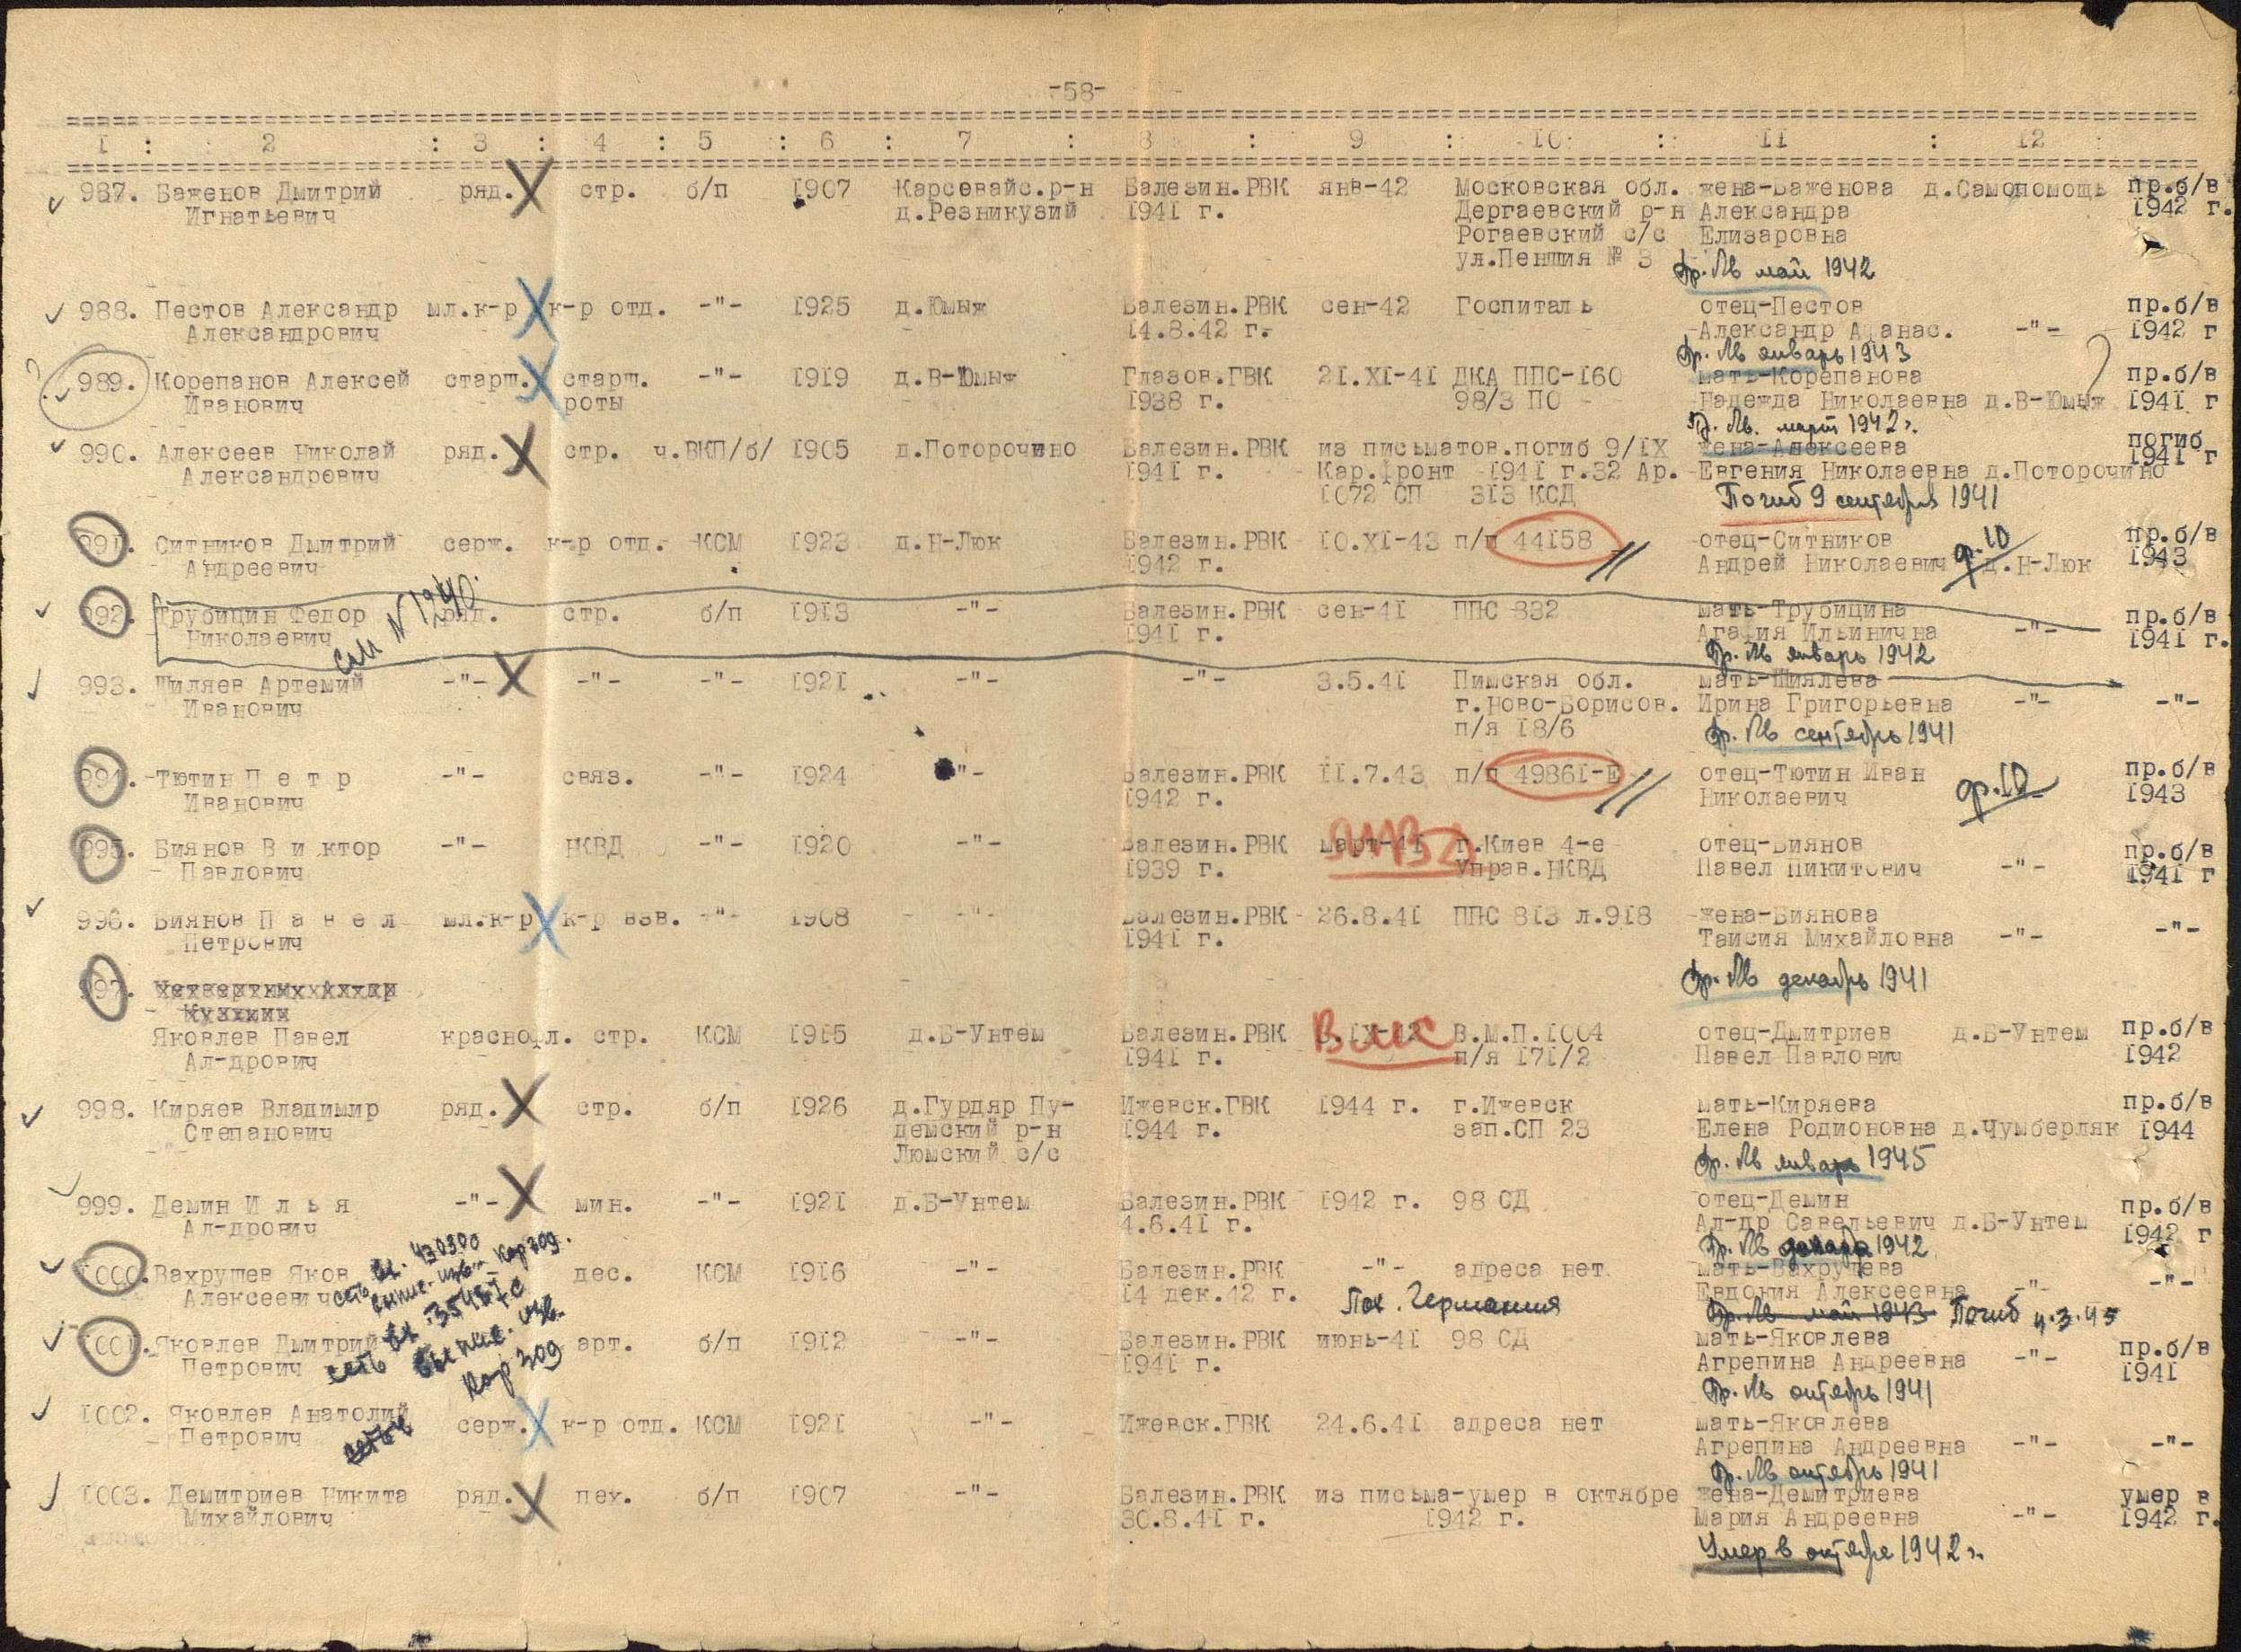 -58-
1 : 2 : 3 : 4 : 5 : 6 : 7 : 8 : 9 : 10 : 11 : 12
987. Баженов Дмитрий ряд. стр. б/п 1907 Карсевайс.р-н Балезин.РВК янв-42 Московская обл. жена-Баженова д.Самопомощь пр.б/в
Игнатьевич д.Резникузий 1941 г. Дергаевский р-н Александра 1942 г.
Рогаевский с/с Елизаровна
ул.Пеншия № 3 Пр. Лв май 1942
988. Пестов Александр мл.к-р к-р отд. -"- 1925 д.Юмыж Балезин.РВК сен-42 Госпиталь отец-Пестов пр.б/в
Александрович 14.8.42 г. Александр Афанас. -"- 1942 г
Пр. Лв январь 1943
989. Корепанов Алексей старш. старш. -"- 1919 д.В-Юмыж Глазов.ГВК 21.XI-41 ДКА ППС-160 мать-Корепанова пр.б/в
Иванович роты 1938 г. 98/3 ПО Надежда Николаевна д.В-Юмыж 1941 г
Пр. Лв. март 1942 г.
990. Алексеев Николай ряд. стр. ч.ВКП/б/ 1905 д.Поторочино Балезин.РВК из письматов.погиб 9/IX жена-Алексеева погиб
Александрович 1941 г. Кар.фронт 1941 г.32 Ар. Евгения Николаевна д.Поторочино 1941 г
1072 СП 313 КСД Погиб 9 сентября 1941
991. Ситников Дмитрий серж. к-р отд. КСМ 1923 д.Н-Люк Балезин.РВК 10.XI-43 п/п 44158 отец-Ситников ф.10 пр.б/в
Андреевич 1942 г. Андрей Николаевич д.Н-Люк 1943
см N 1240.
992. Трубицин Федор ряд. стр. б/п 1913 -"- Балезин.РВК сен-41 ППС 832 мать-Трубицина пр.б/в
Николаевич 1941 г. Агафия Ильинична -"- 1941 г.
Пр. Лв январь 1942
993. Шиляев Артемий -"- -"- -"- 1921 -"- -"- 3.5.41 Пимская обл. мать-Шиялева
Иванович г.Ново-Борисов. Ирина Григорьевна -"- -"-
п/я 18/6 Пр. Лв сентябрь 1941
994. Тютин П е т р -"- связ. -"- 1924 -"- Балезин.РВК 11.7.43 п/п 49861-Е отец-Тютин Иван ф.10 пр.б/в
Иванович 1942 г. Николаевич 1943
995. Биянов В и ктор -"- НКВД -"- 1920 -"- Балезин.РВК март-41 г.Киев 4-е отец-Биянов пр.б/в
Павлович 1939 г. Управ.НКВД Павел Никитович -"- 1941 г
996. Биянов П а в е л мл.к-р к-р взв. -"- 1908 -"- Балезин.РВК 26.8.41 ППС 813 л.918 жена-Биянова -"-
Петрович 1941 г. Таисия Михайловна -"-
Пр. Лв декабрь 1941
997.
Яковлев Павел краснофл. стр. КСМ 1915 д.Б-Унтем Балезин.РВК В.М.П.1004 отец-Дмитриев д.Б-Унтем пр.б/в
Ал-дрович 1941 г. п/я 171/2 Павел Павлович 1942
998. Киряев Владимир ряд. стр. б/п 1926 д.Гурдяр Пу- Ижевск.ГВК 1944 г. г.Ижевск мать-Киряева пр.б/в
Степанович демский р-н 1944 г. зап.СП 23 Елена Родионовна д.Чумберляк 1944
Люмский с/с Пр. Лв январь 1945
999. Демин И л ь я -"- мин. -"- 1921 д.Б-Унтем Балезин.РВК 1942 г. 98 СД отец-Демин пр.б/в
Ал-дрович 4.6.41 г. Ал-др Савельевич д.Б-Унтем 1942 г
Пр. Лв декабрь 1942
1000. Вахрушев Яков дес. КСМ 1916 -"- Балезин.РВК -"- адреса нет мать-Вахрушева -"-
Алексеевич 14 дек.12 г. Евдокия Алексеевна -"-
Пох. Германия Пр. Лв май 1943 Погиб 4.3.45
1001. Яковлев Дмитрий арт. б/п 1912 -"- Балезин.РВК июнь-41 98 СД мать-Яковлева пр.б/в
Петрович 1941 г. Агрепина Андреевна -"- 1941
кар 309 Пр. Лв октябрь 1941
1002. Яковлев Анатолий серж. к-р отд. КСМ 1921 -"- Ижевск.ГВК 24.6.41 адреса нет мать-Яковлева
Петрович Агрепина Андреевна -"- -"-
Пр. Лв октябрь 1941
1003. Демитриев Никита ряд. пех. б/п 1907 -"- Балезин.РВК из письма-умер в октябре жена-Демитриева умер в
Михайлович 30.8.41 г. 1942 г. Мария Андреевна -"- 1942 г.
Умер в октябре 1942 г.